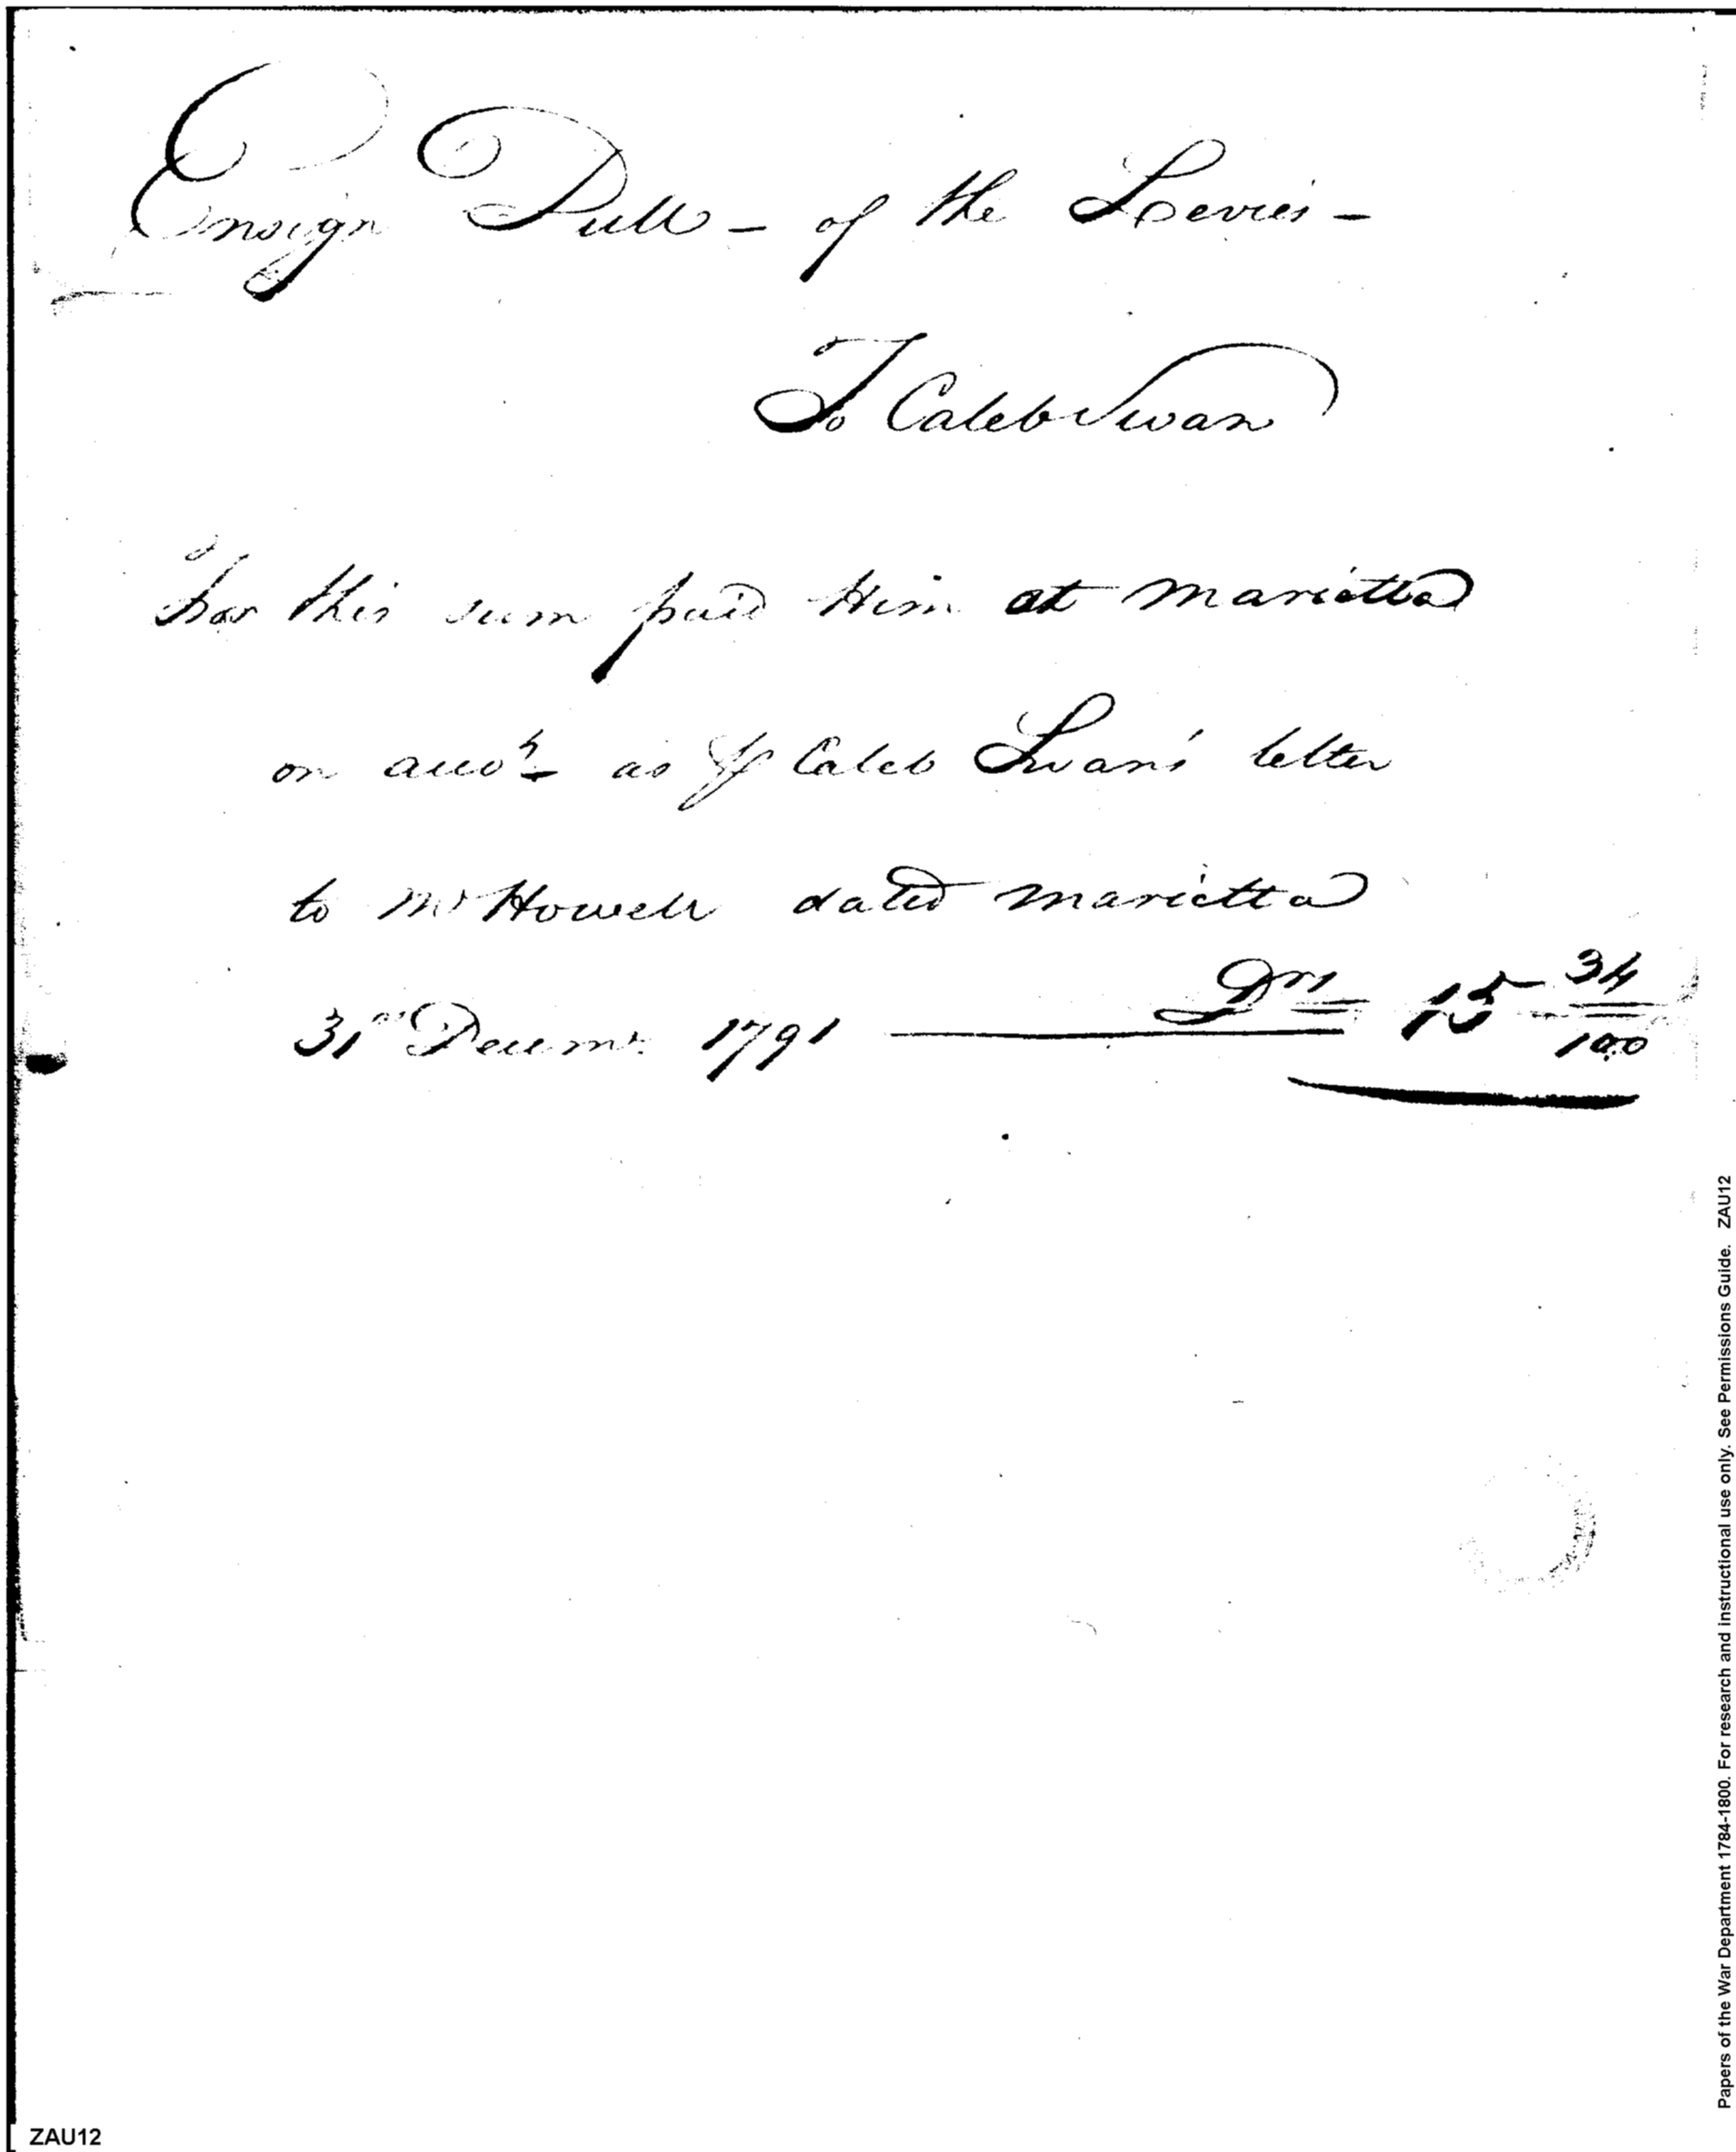 Ensign Pull - of the Levies -
To Caleb Swan
For this sum paid Him at Marietta
on acco.t as ⅌ Caleb Swan's letter
to Mr Howell dated Marietta
31st Decemr. 1791 Drs 15 34/100
Papers of the War Department 1784-1800. For research and instructional use only. See Permissions Guide. ZAU12
ZAU12